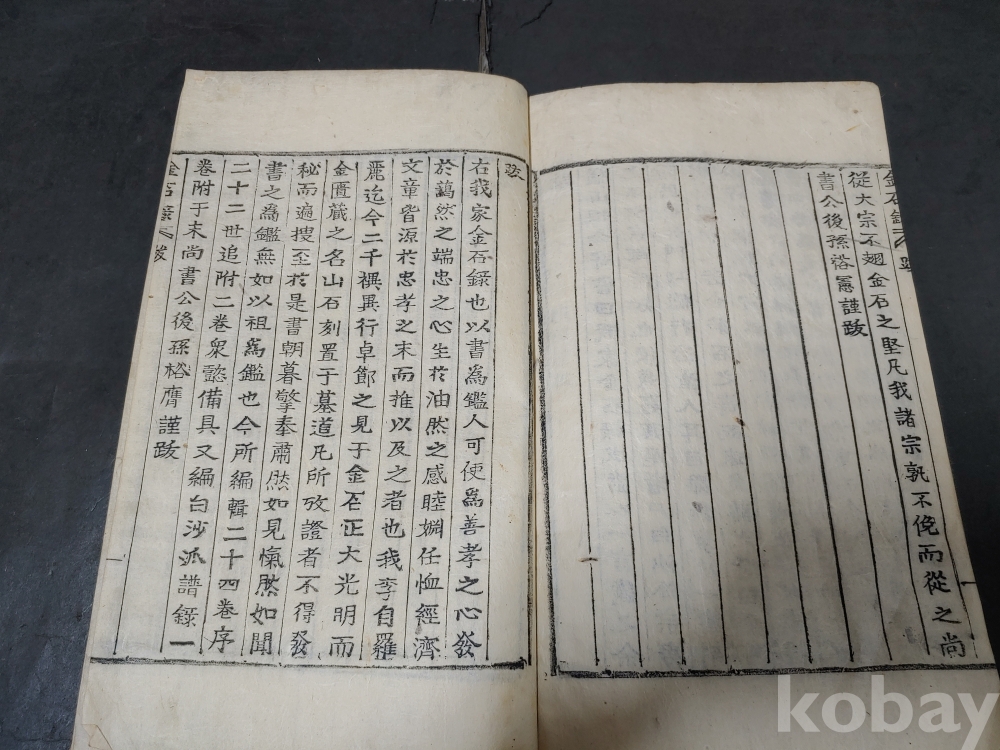 金石錄 跋
從大宗不翅金石之堅凡我諸宗孰不俛而從之尚
書公後孫裕憲謹跋
跋
右我家金石錄也以書為鑑人可使爲善孝之心發
於藹然之端忠之心生於油然之感睦婣任恤經濟
文章皆源於忠孝之末而推以及之者也我李自羅
麗迄今二千禩異行卓節之見于金石正大光明而
金匱藏之名山石刻置于墓道凡所攷證者不得發
秘而遍搜至於是書朝暮擎奉肅然如見愾然如聞
書之為鑑無如以祖爲鑑也今所編輯二十四卷序
二十二世追附二卷衆懿備具又編白沙派譜錄一
卷附于末尚書公後孫裕膺謹跋
金石錄 跋
kobay